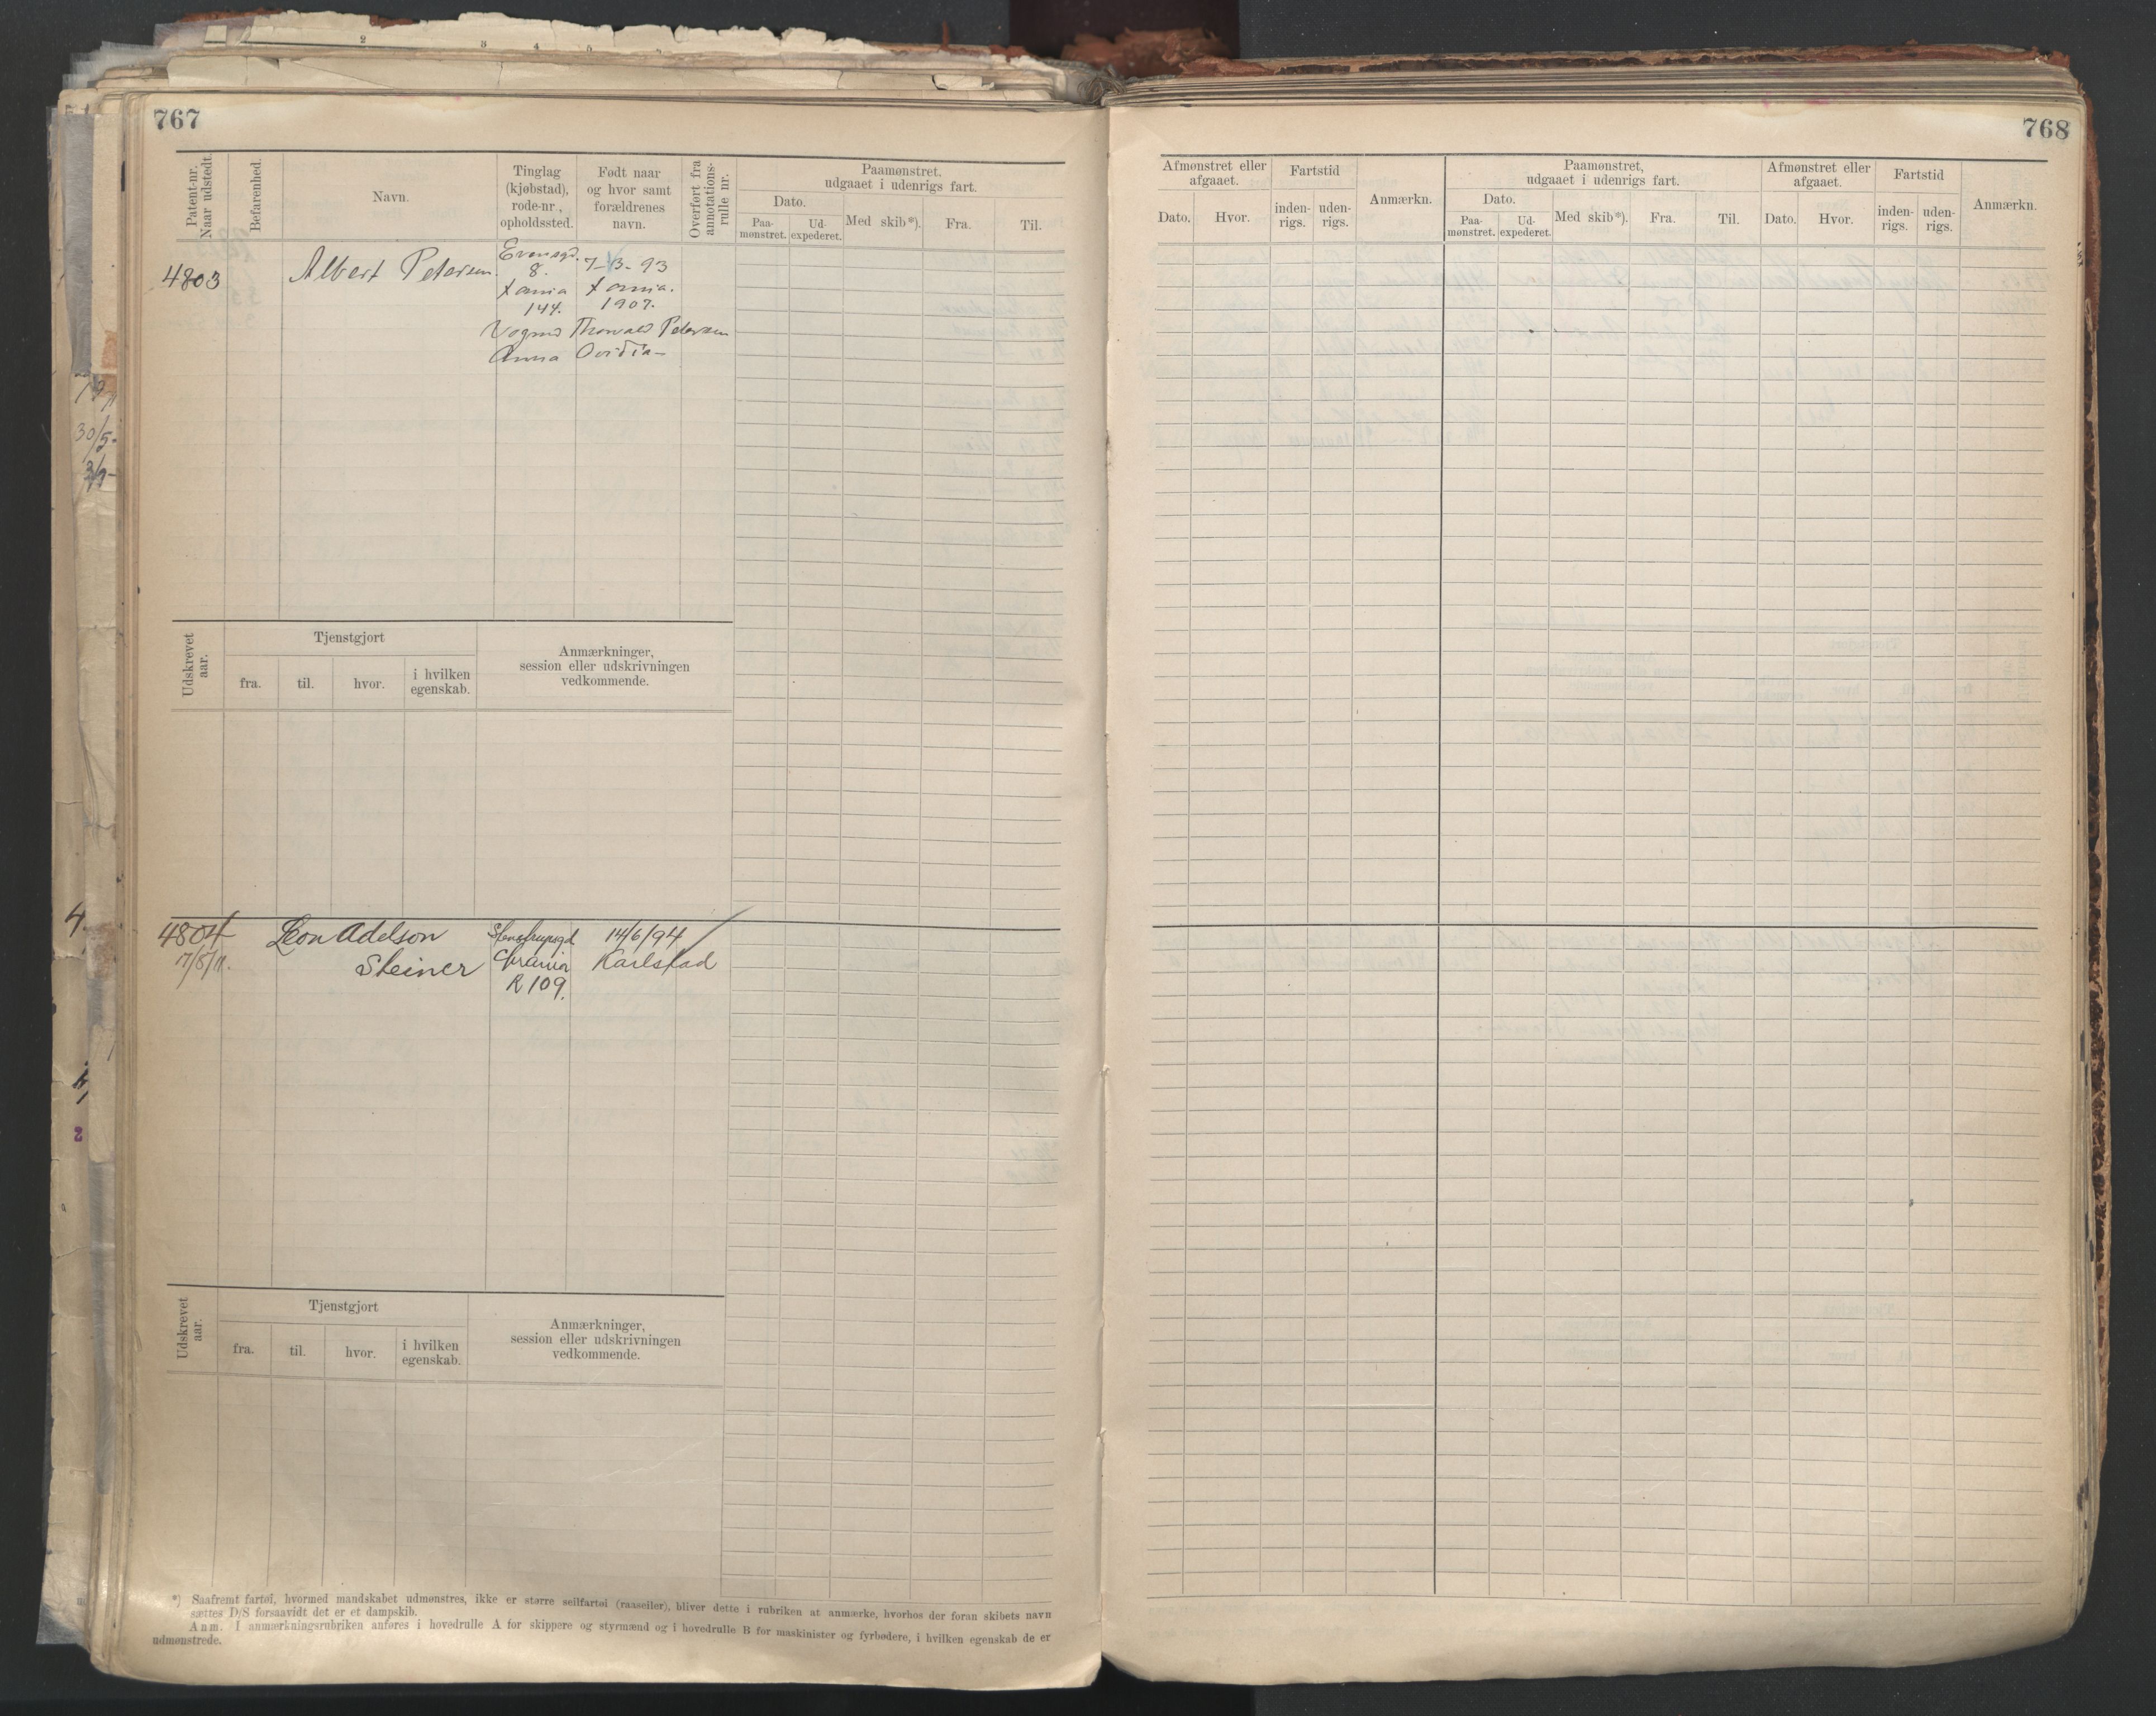 767
Patent-nr. Naar udstedt.
Befarenhed.
Navn.
Tinglag (kjøbstad), rode-nr., opholdssted.
Født naar og hvor samt forældrenes navn.
Overført fra annotations-rulle nr.
Paamønstret, udgaaet i udenrigs fart.
Dato.
Paa-mønstret.
Ud-expederet.
Med skib*).
Fra.
Til.
4803
Albert Petersen.
8.
7-3-93
144.
1907.
Thorvald Petersen
Anna Ovidia
Udskrevet aar.
Tjenstgjort
fra.
til.
hvor.
i hvilken egenskab.
Anmærkninger, session eller udskrivningen vedkommende.
4804
7/8/11.
Leon Adelson
Steiner
Stenstrupgd
Chrania
R 109.
14/6/94
Karlstad
Udskrevet aar.
Tjenstgjort
fra.
til.
hvor.
i hvilken egenskab.
Anmærkninger, session eller udskrivningen vedkommende.
*) Saafremt fartøi, hvormed mandskabet udmønstres, ikke er større seilfartøi (raaseiler), bliver dette i rubriken at anmærke, hvorhos der foran skibets navn
sættes D/S forsaavidt det er et dampskib.
Anm. I anmærkningsrubriken anføres i hovedrulle A for skippere og styrmænd og i hovedrulle B for maskinister og fyrbødere, i hvilken egenskab de er
udmønstrede.
768
Afmønstret eller afgaaet.
Dato.
Hvor.
Fartstid
inden-rigs.
uden-rigs.
Anmærkn.
Paamønstret, udgaaet i udenrigs fart.
Dato.
Paa-mønstret.
Ud-expederet.
Med skib*).
Fra.
Til.
Afmønstret eller afgaaet.
Dato.
Hvor.
Fartstid
inden-rigs.
uden-rigs.
Anmærkn.